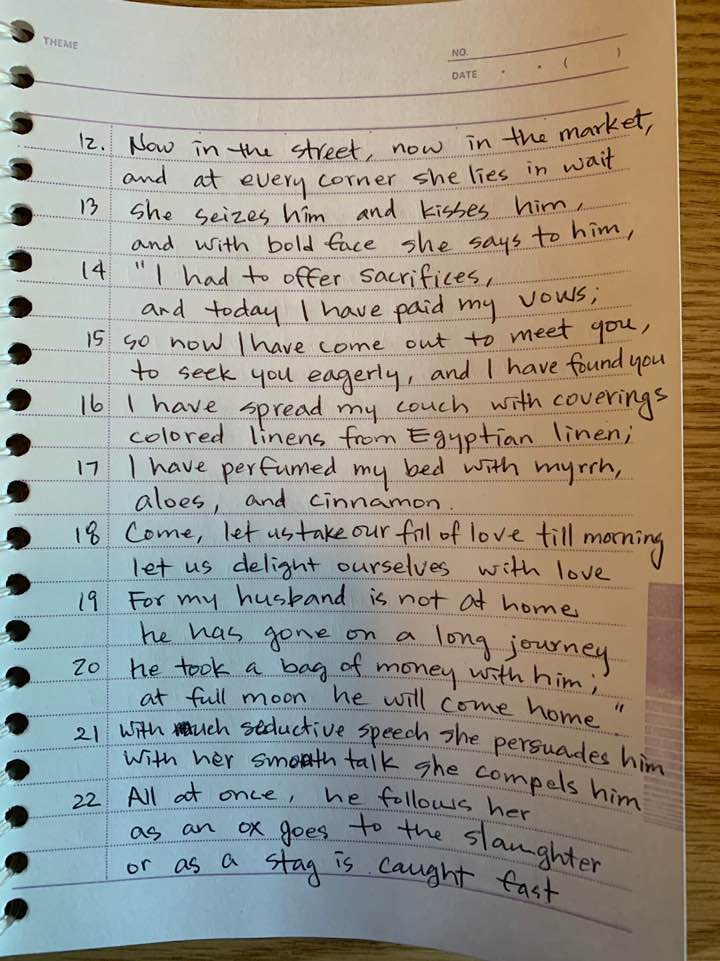 THEME
NO.
DATE . . ( )
12. Now in the street, now in the market,
and at every corner she lies in wait
13 she seizes him and kisses him,
and with bold face she says to him,
14 "I had to offer sacrifices,
and today I have paid my vows;
15 so now I have come out to meet you,
to seek you eagerly, and I have found you
16 I have spread my couch with coverings
colored linens from Egyptian linen;
17 I have perfumed my bed with myrrh,
aloes, and cinnamon.
18 Come, let us take our fill of love till morning
let us delight ourselves with love
19 For my husband is not at home,
he has gone on a long journey
20 he took a bag of money with him;
at full moon he will come home."
21 With much seductive speech she persuades him
With her smooth talk she compels him
22 All at once, he follows her
as an ox goes to the slaughter
or as a stag is caught fast